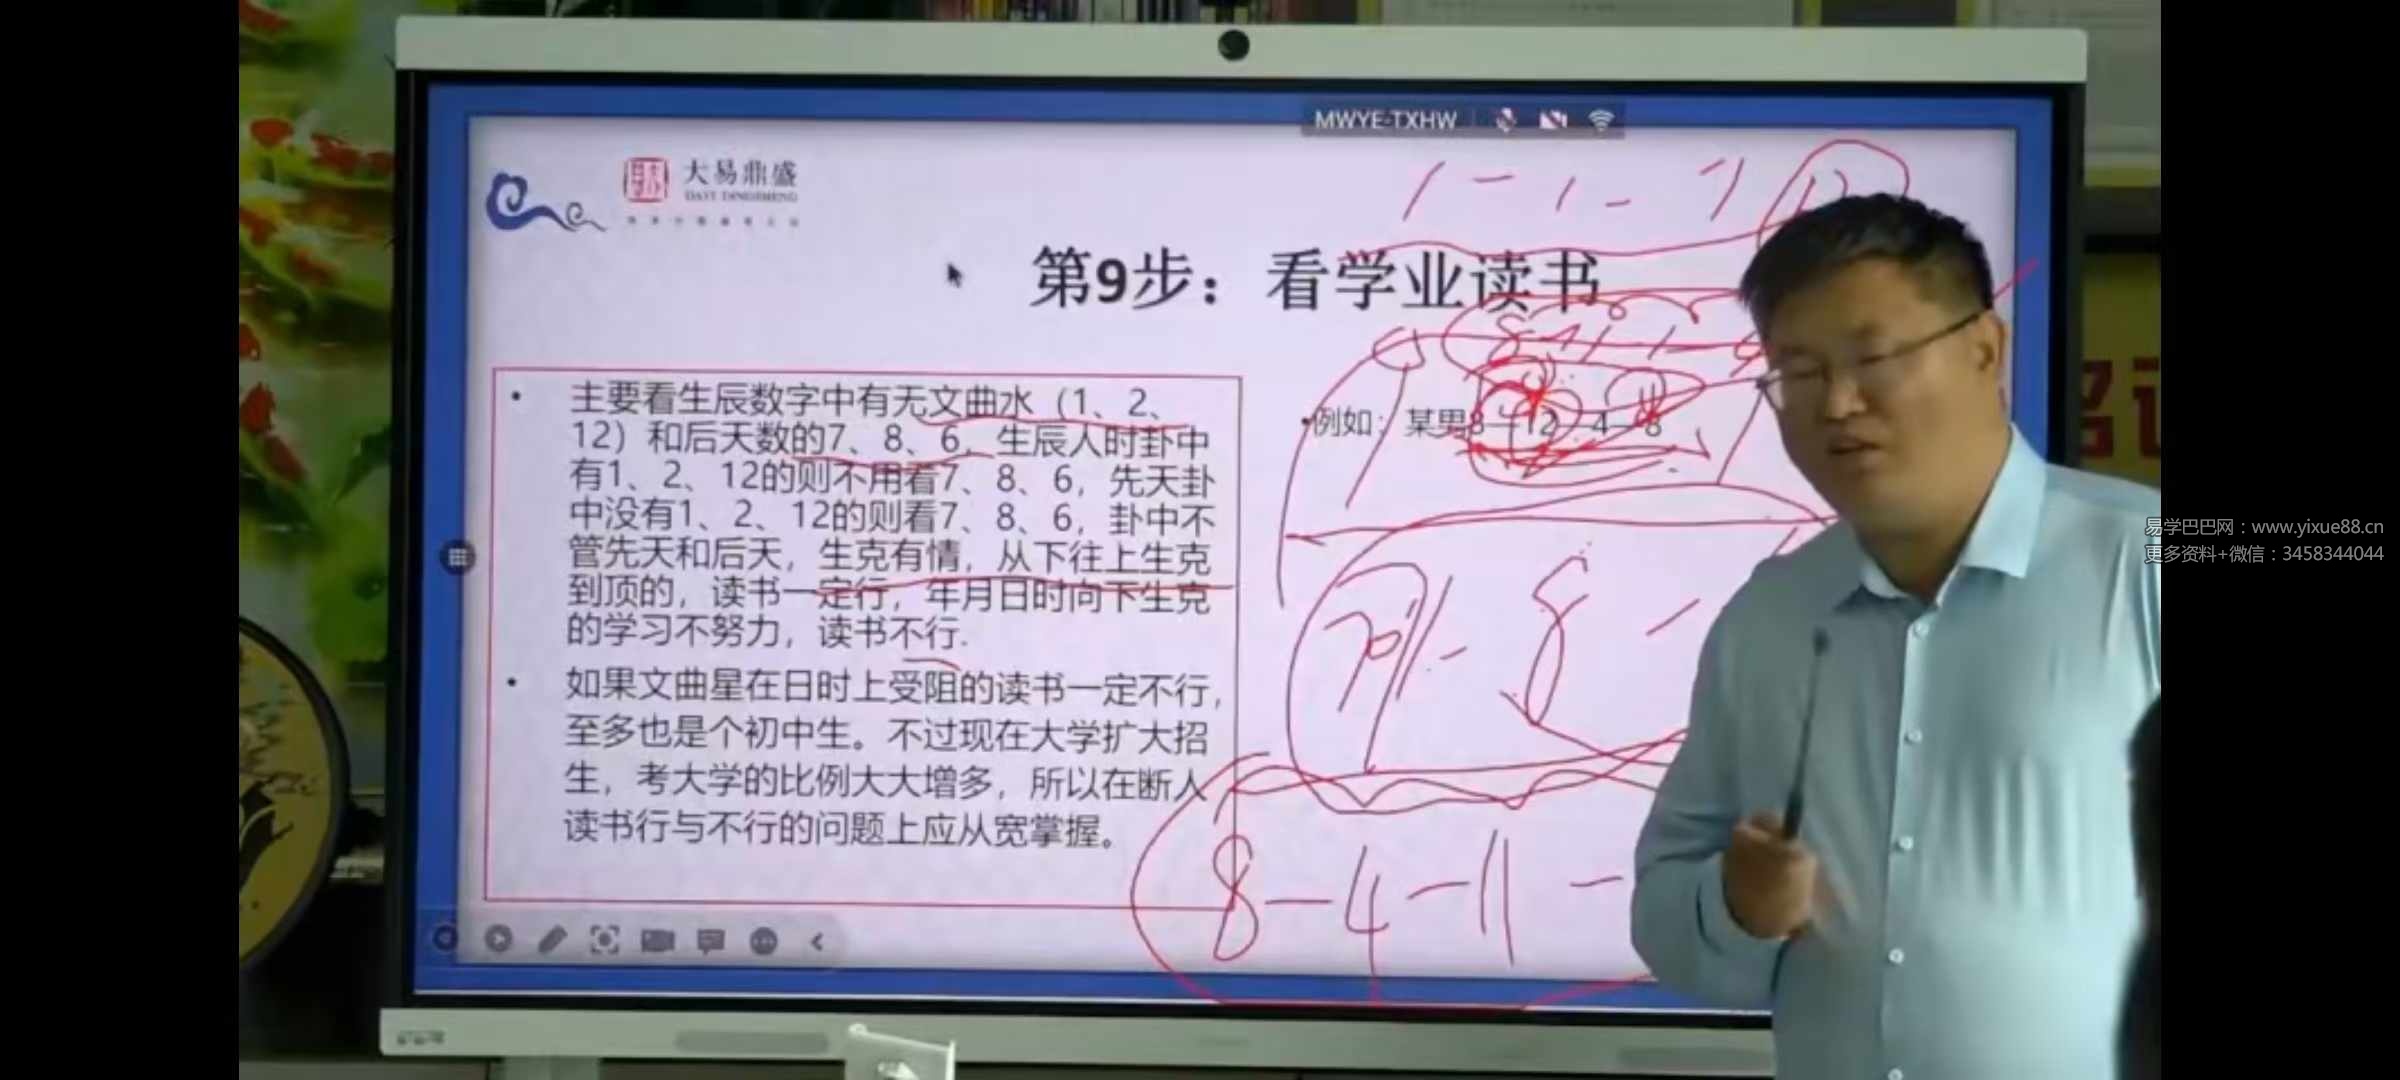 MWYE-TXHW
大易鼎盛
DAYI DINGSHENG
第9步：看学业读书
• 主要看生辰数字中有无文曲水（1、2、
12）和后天数的7、8、6，生辰人时卦中
有1、2、12的则不用看7、8、6，先天卦
中没有1、2、12的则看7、8、6，卦中不
管先天和后天，生克有情，从下往上生克
到顶的，读书一定行，年月日时向下生克
的学习不努力，读书不行.
• 如果文曲星在日时上受阻的读书一定不行，
至多也是个初中生。不过现在大学扩大招
生，考大学的比例大大增多，所以在断人
读书行与不行的问题上应从宽掌握。
•例如：某男8—12—4—8
8-4-11-
易学巴巴网：www.yixue88.cn
更多资料+微信：3458344044